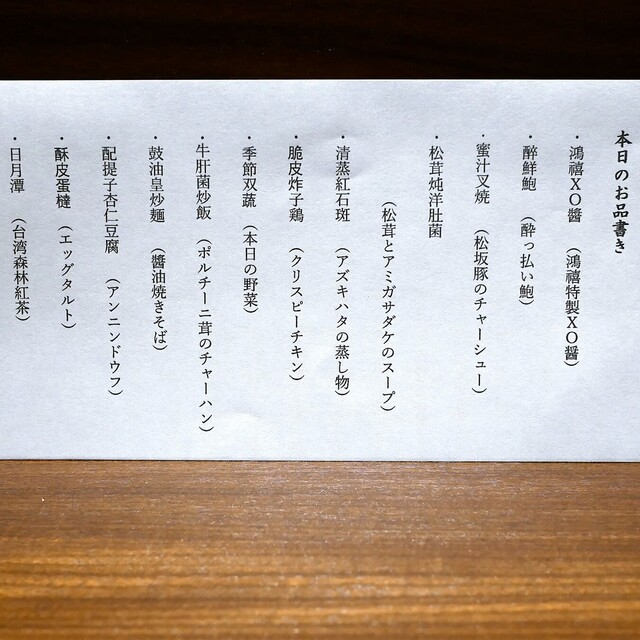 本日のお品書き
・鴻禧XO醬 (鴻禧特製XO醤)
・醉鮮鮑 (酔っ払い鮑)
・蜜汁叉焼 (松坂豚のチャーシュー)
・松茸炖洋肚菌
(松茸とアミガサダケのスープ)
・清蒸紅石斑 (アズキハタの蒸し物)
・脆皮炸子鶏 (クリスピーチキン)
・季節双蔬 (本日の野菜)
・牛肝菌炒飯 (ポルチーニ茸のチャーハン)
・鼓油皇炒麺 (醬油焼きそば)
・配提子杏仁豆腐 (アンニンドウフ)
・酥皮蛋橽 (エッグタルト)
・日月潭 (台湾森林紅茶)